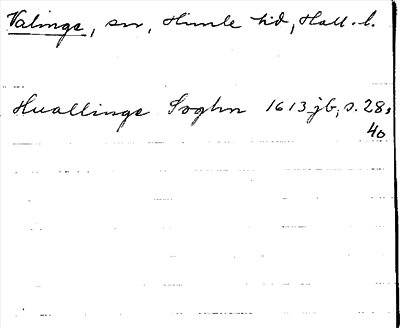 Valinge, sn, Himle hd, Hall. l.
Huallinge Soghn 1613 jb, s. 28,
40